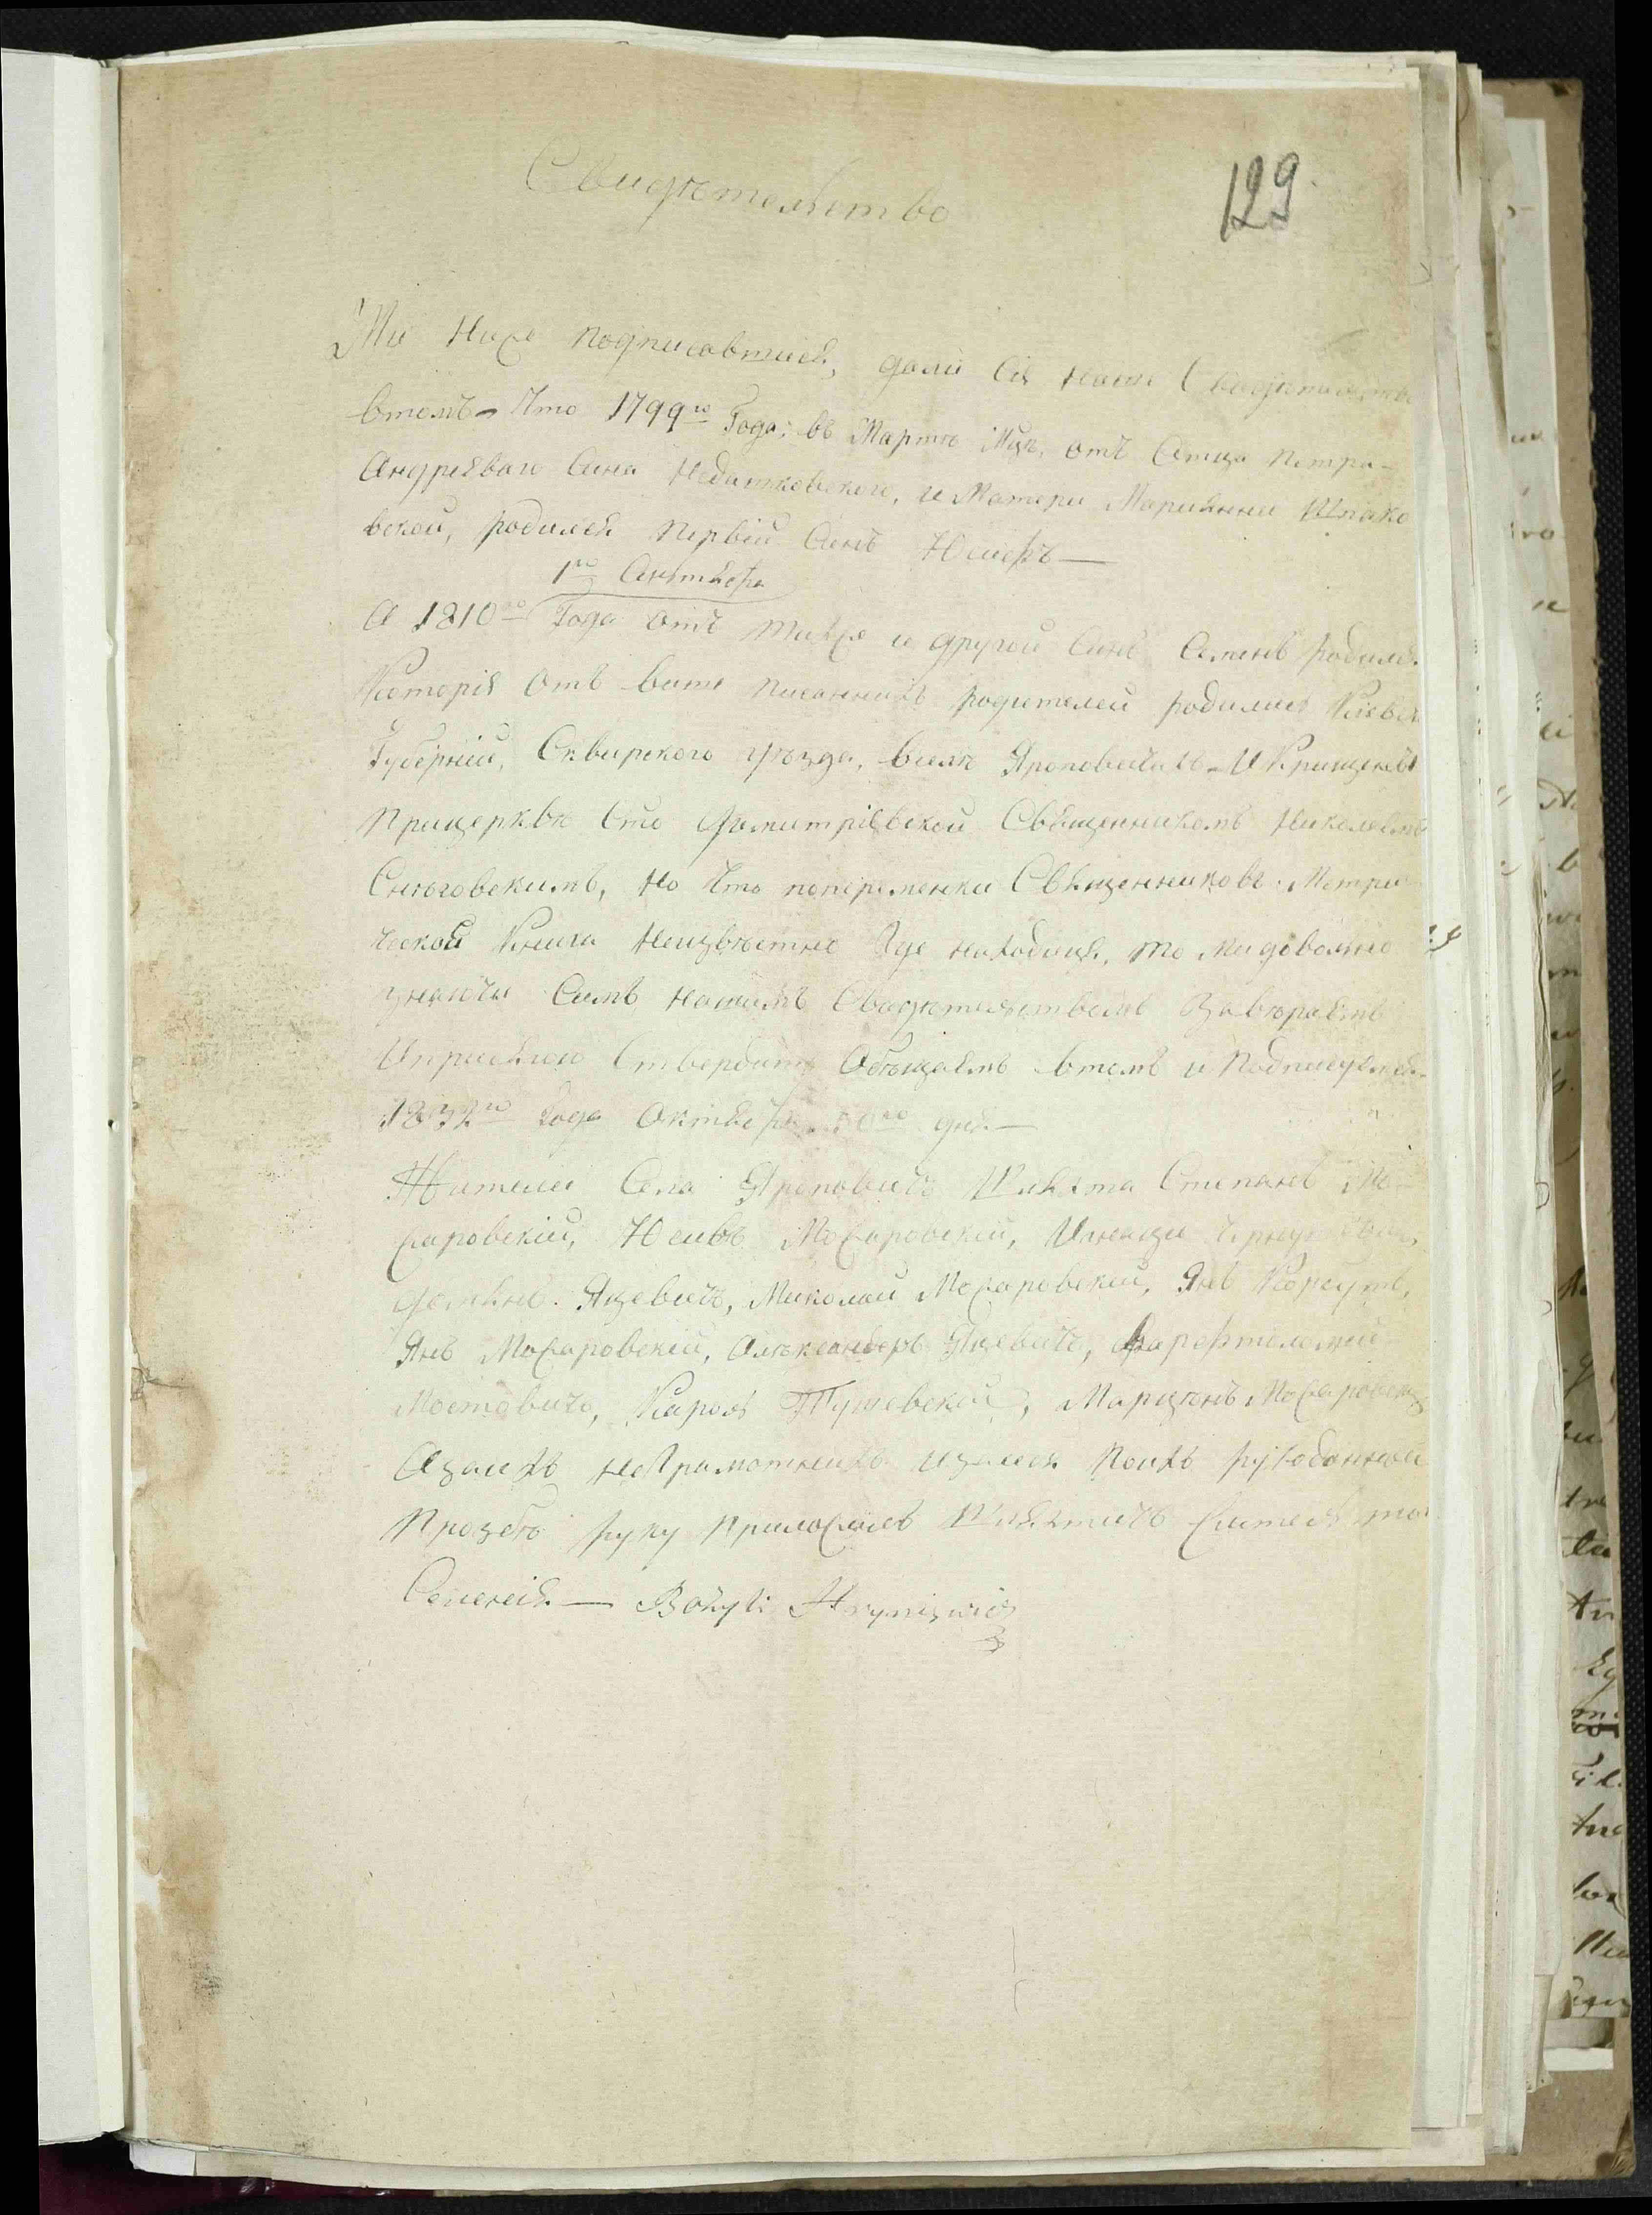 Свидѣтельство
129
Ми Ниже подписавшиеся, дали Сія Наше Свидѣтельство
втомъ – Что 1799го Года: въ Мартѣ Мцѣ, отъ Отца Петра –
Андрѣеваго Сина Недашковского, и Матери Марианни Шпако
вской, родился Первій Синъ Юсиѳъ —
1го Сентября
А 1810го Года отъ тихже и другой Синъ Семенъ родился
Которія отъ више писаннихъ родителей родились Кіевск
Губерніи, Сквирского уѣзда, Вселѣ Яроповичахъ – И Крищенъ
Прицерквѣ Сто Димитріевской Священникомъ Николаемъ
Снѣговскимъ, но Что поперменки Священниковъ Метри
ческой Книги Неизвѣстно Где находица, то ми доволно
знаючи Симъ нашимъ Свидѣтельствомъ Завѣраемъ
Иприсягою Ствердить Обѣщаемъ втомъ и Подписуемся
1832го Года Октября 30го дня. —
Жители Села Яроповичъ Шляхта Степанъ Мо
жаровскій, Юсивъ Можаровскій,
Демянъ Яцевичъ, Миколай Можаровскій, Янъ Коржутъ,
Янъ Можаровскій, Алѣксандеръ Яцевичъ, Варѳтоломей
Мостовичъ, Кароль Тушевскій, Марцѣнъ Можаровскі
Азаихъ неграмотнихъ Поихъ рукоданной
Прозбѣ руку Приложилъ Шляхтичъ житель того
Селенія — Hryniewicz